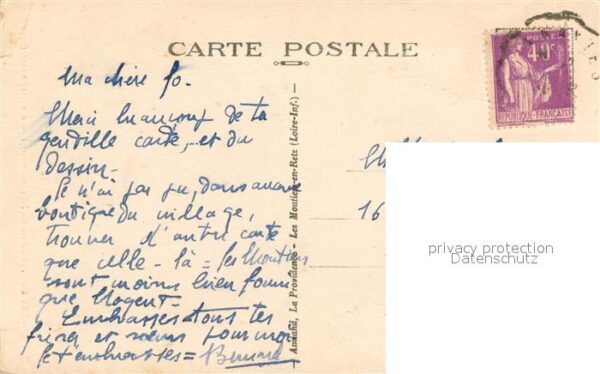 CARTE POSTALE
POSTES
40c
REPUBLIQUE FRANÇAISE
Ma chère Jo.
Merci beaucoup de ta
gentille carte, et du
dessin.
Je n'ai pas pu, dans aucune
boutique du village,
trouver d'autre carte
que celle-là = Les Moutiers
sont moins bien fourni
que Nogent.
Embrasses tous tes
frères et sœurs pour moi
Je t'embrasses = Bernard
Armand, La Providence - Les Moutiers-en-Retz (Loire-Inf.)
16
privacy protection
Datenschutz